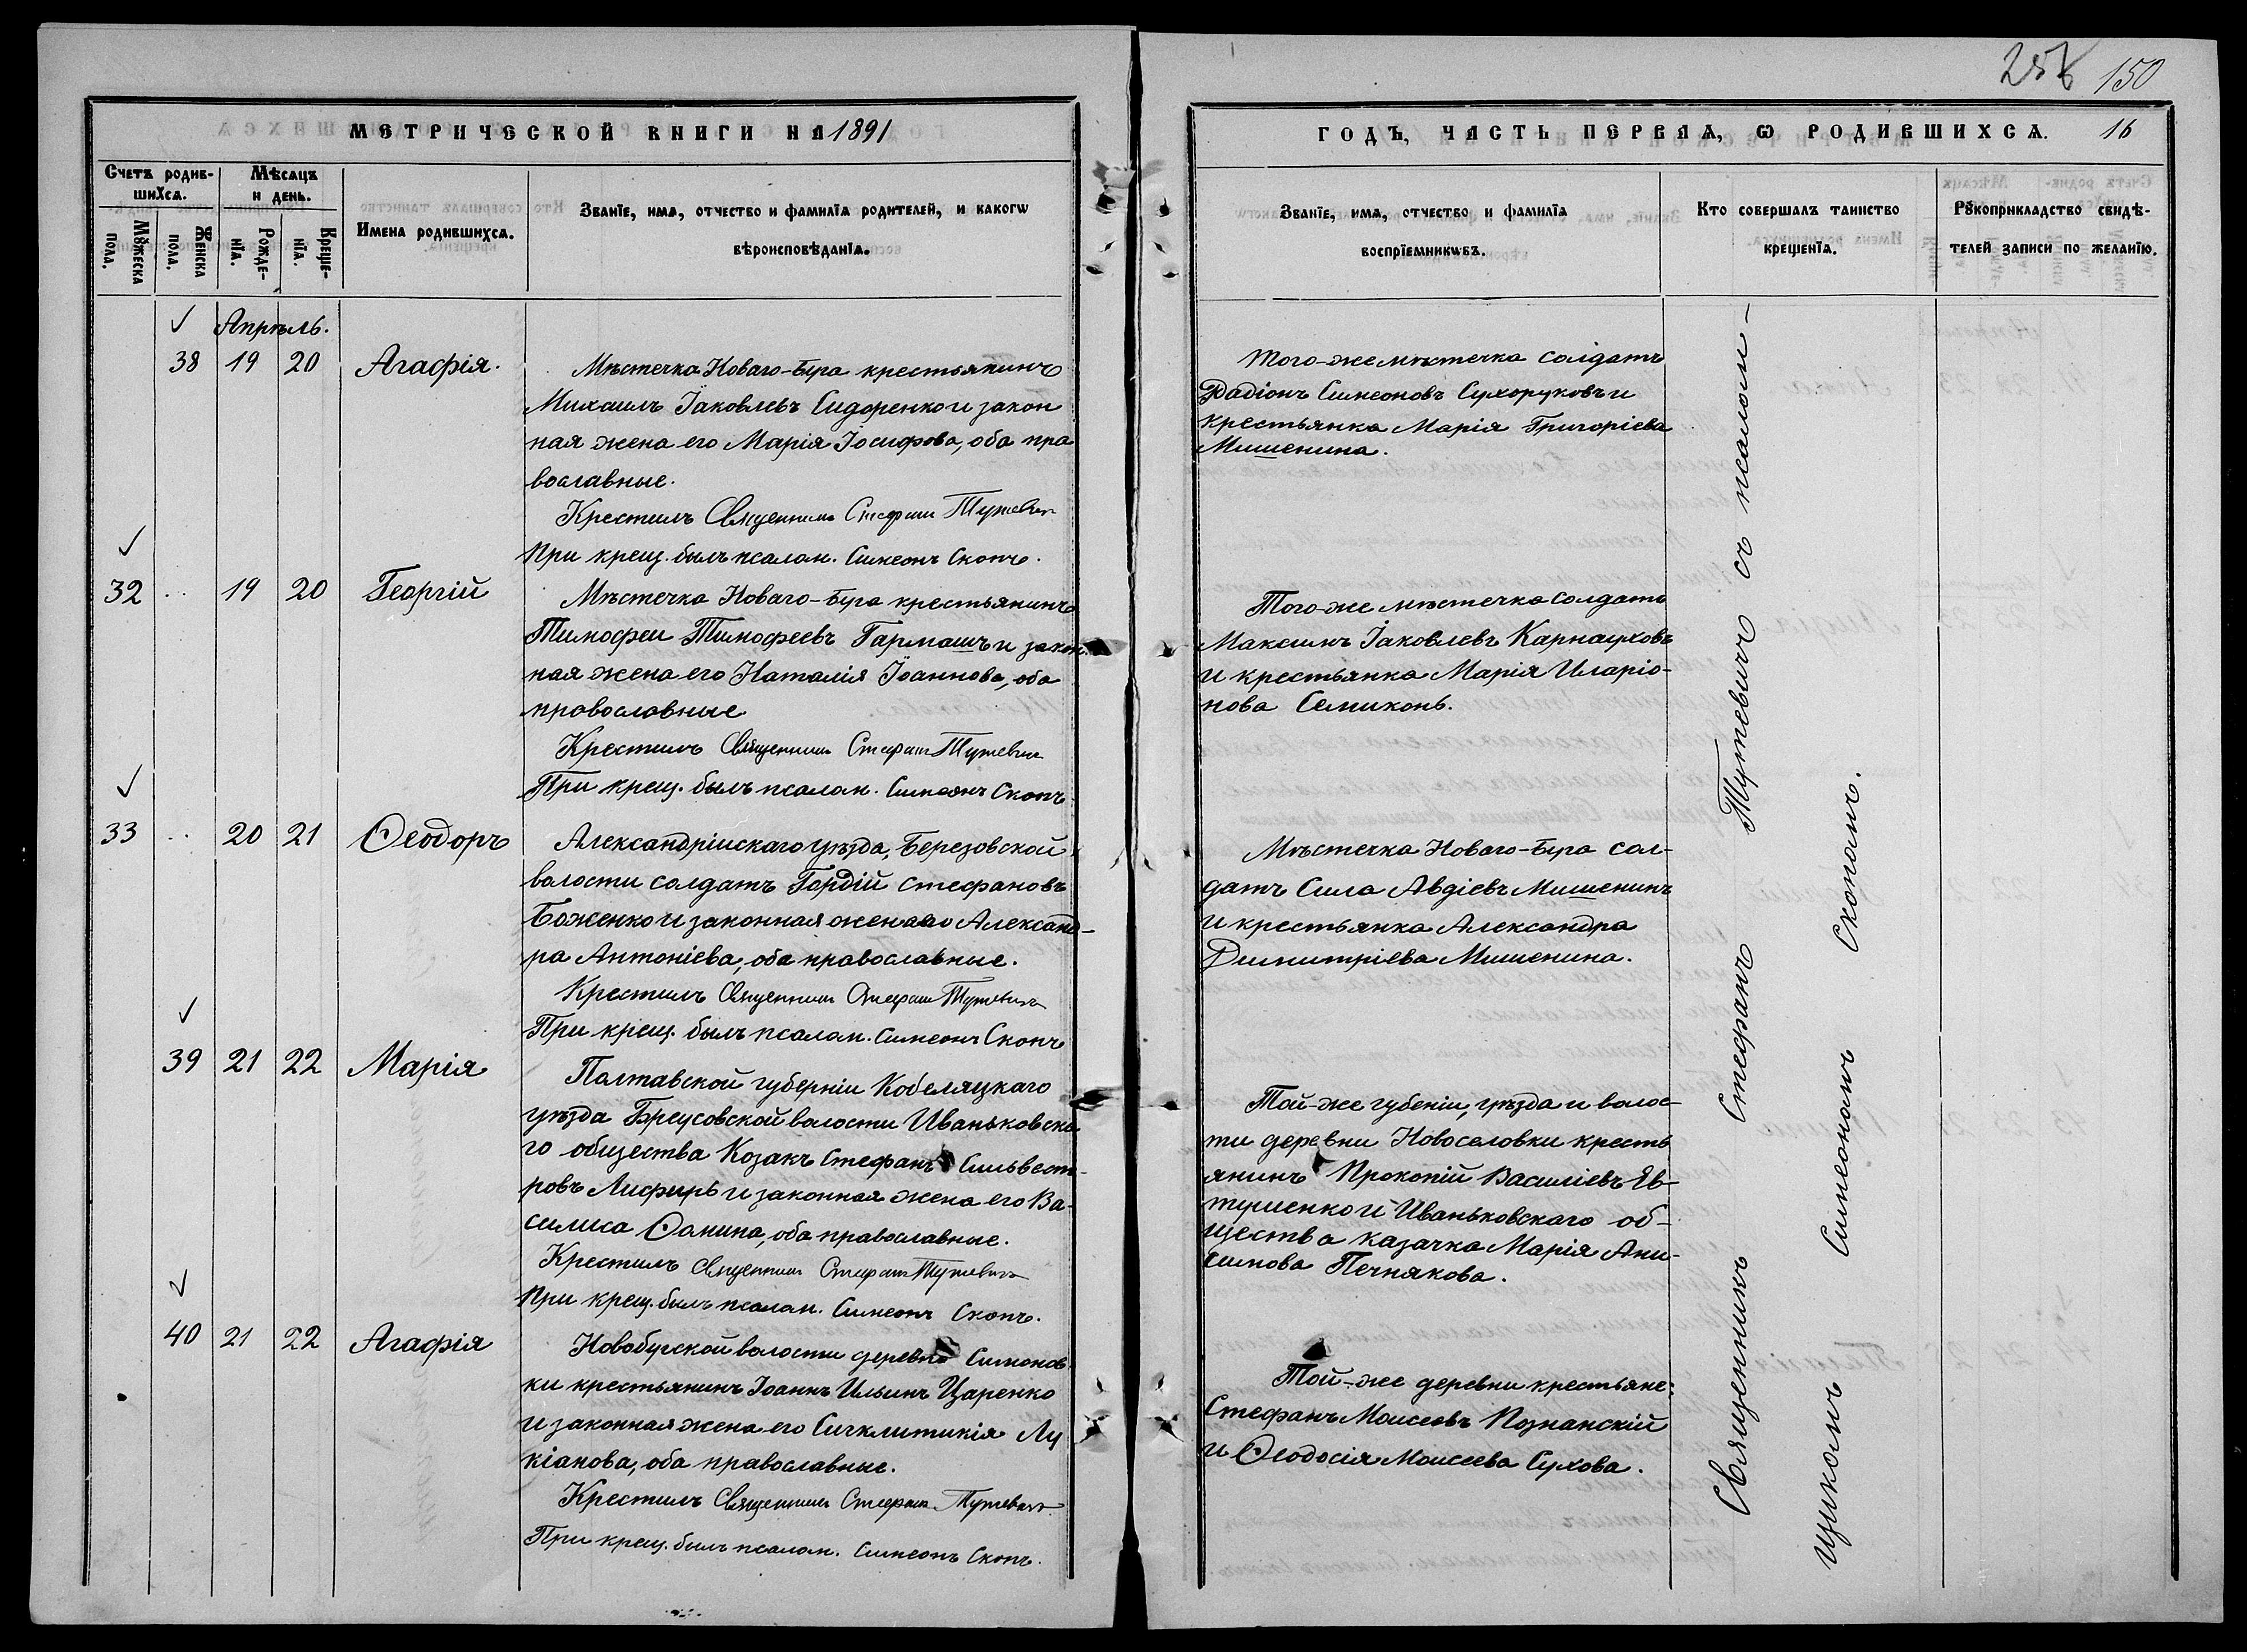 МЕТРИЧЕСКОЙ КНИГИ НА 1891
Счетъ родив-
шихсѧ.
Мѣсѧцъ
и день.
Мꙋжеска
пола.
Женска
пола.
Рожде-
нїѧ.
Креще-
нїѧ.
Имена родившихсѧ.
Званїе, имѧ, отчество и фамилїѧ родителей, и какогѡ
вѣроисповѣданїѧ.
Апрѣль.
38 19 20 Агафія.
Мѣстечка Новаго-Буга крестьянинъ
Михаилъ Іаковлевъ Сидоренко и закон
ная жена его Марія Іосифова, оба пра
вославные.
Крестилъ Священникъ Стефанъ Тутевичъ
При крещ. былъ псалом. Симеонъ Скопъ.
32 .. 19 20 Георгій
Мѣстечка Новаго-Буга крестьянинъ
Тимофеи Тимофеевъ Гармашъ и закон-
ная жена его Наталія Іоаннова, оба
православные
Крестилъ Священникъ Стефанъ Тутевичъ
При крещ. былъ псалом. Симеонъ Скопъ.
33 .. 20 21 Ѳеодоръ
Александрійскаго уѣзда, Березовской
волости солдатъ Гордій Стефановъ
Боженко и законная жена его Александ-
ра Антоніева, оба православные.
Крестилъ Священникъ Стефанъ Тутевичъ
При крещ. былъ псалом. Симеонъ Скопъ
39 21 22 Марія
Полтавской губерніи Кобеляцкаго
уѣзда Бреусовской волости Иваньковска
го общества Козакъ Стефанъ Сильвест-
ровъ Лифирь и законная жена его Ва-
силиса Ѳомина, оба православные.
Крестилъ Священникъ Стефанъ Тутевичъ
При крещ. былъ псалом. Симеонъ Скопъ.
40 21 22 Агафія
Новобугской волости деревни Симонов
ки крестьянинъ Іоаннъ Ильинъ Царенко
и законная жена его Сигклитикія Лу
кіанова, оба православные.
Крестилъ Священникъ Стефанъ Тутевичъ.
При крещ. былъ псалом. Симеонъ Скопъ.
257 150
ГОДЪ, ЧАСТЬ ПЕРВАѦ, Ѡ РОДИВШИХСѦ. 16
Званїе, имѧ, отчество и фамилїѧ
воспрїемникѡвъ.
Кто совершалъ таинство
крещенїѧ.
Рꙋкоприкладство свидѣ-
телей записи по желанїю.
Того-же мѣстечка солдатъ
Радіонъ Симеоновъ Сухоруковъ и
крестьянка Марія Григоріева
Мишенина.
Того-же мѣстечка солдатъ
Максимъ Іаковлевъ Карнауховъ
и крестьянка Марія Иларіо-
нова Семиконь.
Мѣстечка Новаго-Буга сол-
датъ Сила Авдіевъ Мишенинъ
и крестьянка Александра
Димитріева Мишенина.
Той-же губеніи, уѣзда и волос-
ти деревни Новоселовки кресть
янинъ Прокопій Василіевъ Ев-
тушенко и Иваньковскаго об-
щества казачка Марія Ани-
симова Печнякова.
Той-же деревни крестьяне:
Стефанъ Моисеевъ Познанскій
и Ѳеодосія Моисеева Сухова.
Священникъ Стефанъ Тутевичъ съ псалом-
щикомъ Симеономъ Скопомъ.